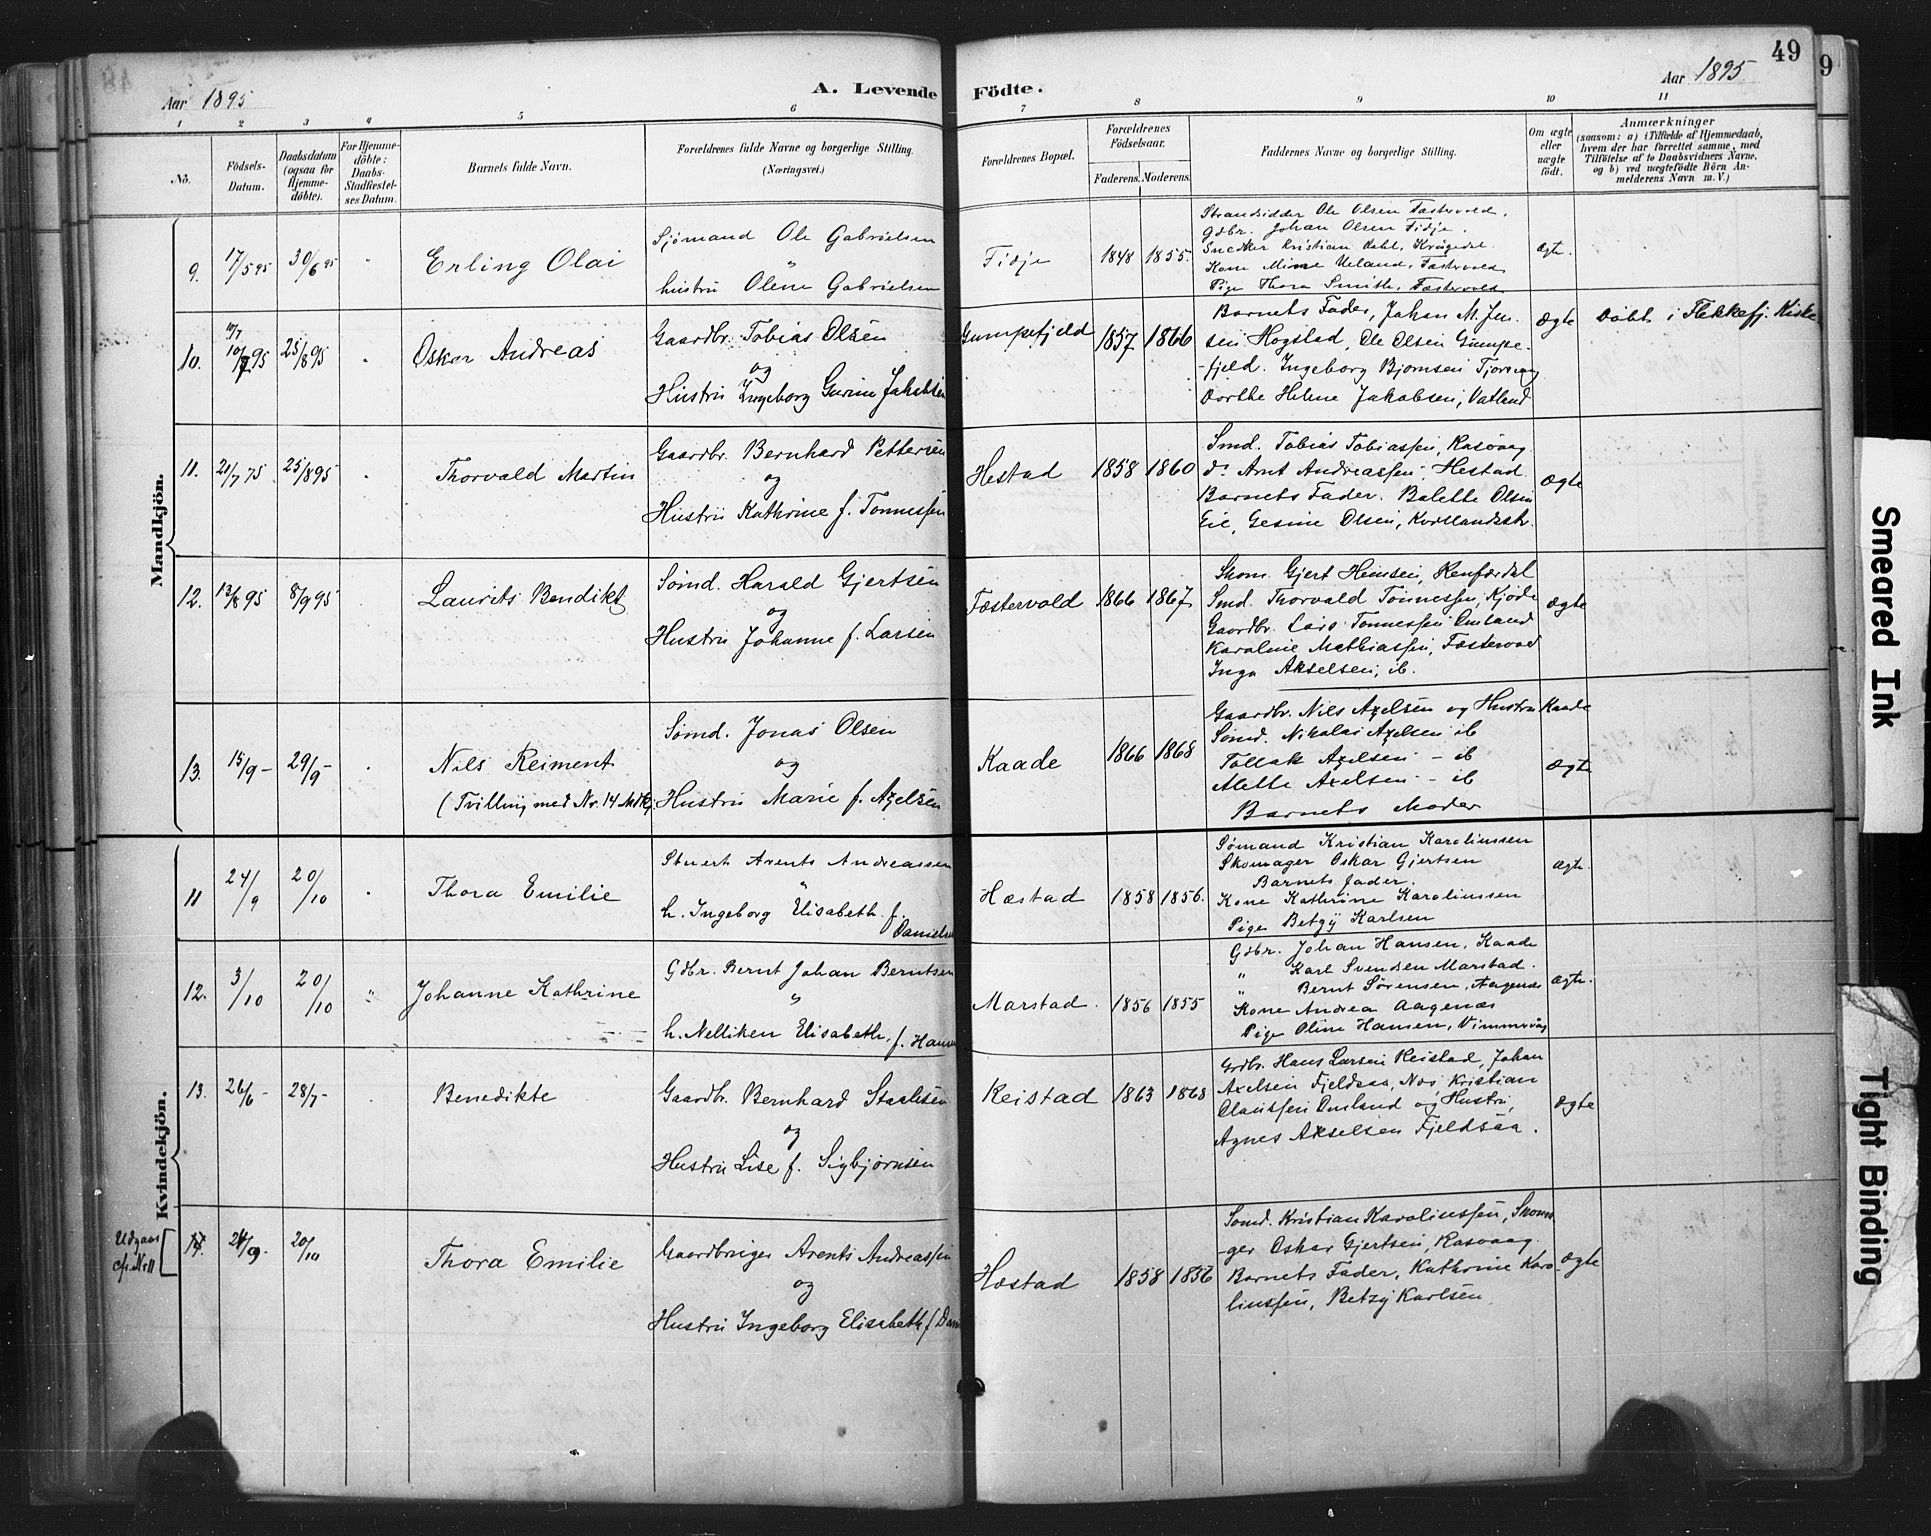 49
9
Aar 1895
A. Levende Födte.
Aar 1895
1 2 3 4 5 6 7 8 9 10 11
No.
Födsels-Datum.
Daabsdatum (ogsaa for Hjemme-döbte).
For Hjemme-döbte: Daabs-Stadfæstel-ses Datum.
Barnets fulde Navn.
Forældrenes fulde Navne og borgerlige Stilling. (Næringsvei.)
Forældrenes Bopæl.
Forældrenes Födselsaar.
Faderens. Moderens.
Faddernes Navne og borgerlige Stilling.
Om ægte eller uægte födt.
Anmærkninger
(saasom: a) i Tilfælde af Hjemmedaab,
hvem der har forrettet samme, med
Tilföielse af to Daabsvidners Navne,
og b) ved uægtefödte Börn An-
melderens Navn m. V.)
Mandkjön.
9. 17/5 95 30/6 95 " Erling Olai
Sjömand Ole Gabrielsen
"
hustru Olene Gabrielsen
Fidje 1848 1855.
Strandsidder Ole Olsen Fæstervold.
Gdbr. Johan Olsen Fidje.
Snedker Kristian Dahl, Krågedal.
Kone Mine Ueland, Fæstervold
Pige Thora Smith, Fæstervold
ægte.
10. 10/7 95 25/8 95 Oskar Andreas
Gaardbr. Tobias Olsen
og
Hustru Ingeborg Gurine Jakobsen
Gumpefjeld 1857 1866
Barnets Fader, Johan M. Jen-
sen Hogstad, Ole Olsen Gumpe-
-fjeld. Ingeborg Bjornsen Tjorsvag
Dorthe Helene Jakobsen, Vatland
ægte Döbt i Flekkefj. Kirke
11. 21/7 75 25/8 95 Thorvald Martin
Gaardbr. Bernhard Pettersen
og
Hustru Kathrine f. Tonnessen
Hestad 1858 1860
Smd. Tobias Tobiassen, Rasvaag
do Arnt Andreassen, Hestad
Barnets Fader. Balette Olsen
Eie, Gesine Olsen,
ægte
12. 13/8 95 8/9 95 Laurits Bendikt
Sömd. Harald Gjertsen
og
Hustru Johanne f. Larsen
Fæstervold 1866 1867
Skom. Gjert Hensen,
Smd. Thorvald Tönnessen, Kjöde
Gaardbr. Lars Tonnessen Omland
Karoline Mathiassen, Fæstervold
Inga Akselsen, ib.
ægte
13. 15/9 - 29/9 - Nils Reiment
(Tvilling med Nr. 14 Mdkj
Sömd. Jonas Olsen
og
Hustru Marie f. Axelsen
Kaade 1866 1868
Gaardbr. Nils Axelsen og Hustru Kaade
Sömd. Nikolai Axelsen ib
Tollak Axelsen - ib
Mette Axelsen - ib
Barnets Moder
ægte
Kvindekjön.
11 24/9 20/10 Thora Emilie
Stuert Arents Andreassen
"
h. Ingeborg Elisabeth f.
Danielse
Hæstad 1858 1856.
Sömand Kristian Karolinssen
Skomager Oskar Gjertsen
Barnets fader.
Kone Kathrine Karolinssen
Pige Betzy Karlsen
ægte.
12. 3/10 20/10 " Johanne Kathrine
Gdbr. Bernt Johan Berntsen
"
h. Nelliken Elisabeth, f. Hans
Marstad. 1856 1855
Gdbr. Johan Hansen, Kaade
" Karl Svendsen Marstad.
" Bernt Sörensen, Aagenæs
Kone Andrea Aagenæs
Pige Oline Hansen,
ægte.
13. 26/6 - 28/7 - Benedikte
Gaardbr. Bernhard Staalesen
og
Hustru Lise f. Sigbjörnsen
Reistad 1863 1868
Grdbr. Hans Larsen Reistad, Johan
Axelsen Fjeldsaa, Nos Kristian
Clausen Omland og Hustru,
Agnes Akselsen Fjeldsaa.
ægte
Udgaar
cfr. Nr 11
14. 24/9. 20/10 Thora Emilie
Gaardbruger Arents Andreassen
og
Hustru Ingeborg Elisabeth f Dan
Hæstad 1858 1856
Somd. Kristian Karolinssen, Skoma
-ger Oskar Gjertsen, Rasvaag
Barnets Fader, Kathrine Karo-
linssen, Betzy Karlsen
ægte
Smeared Ink
Tight Binding